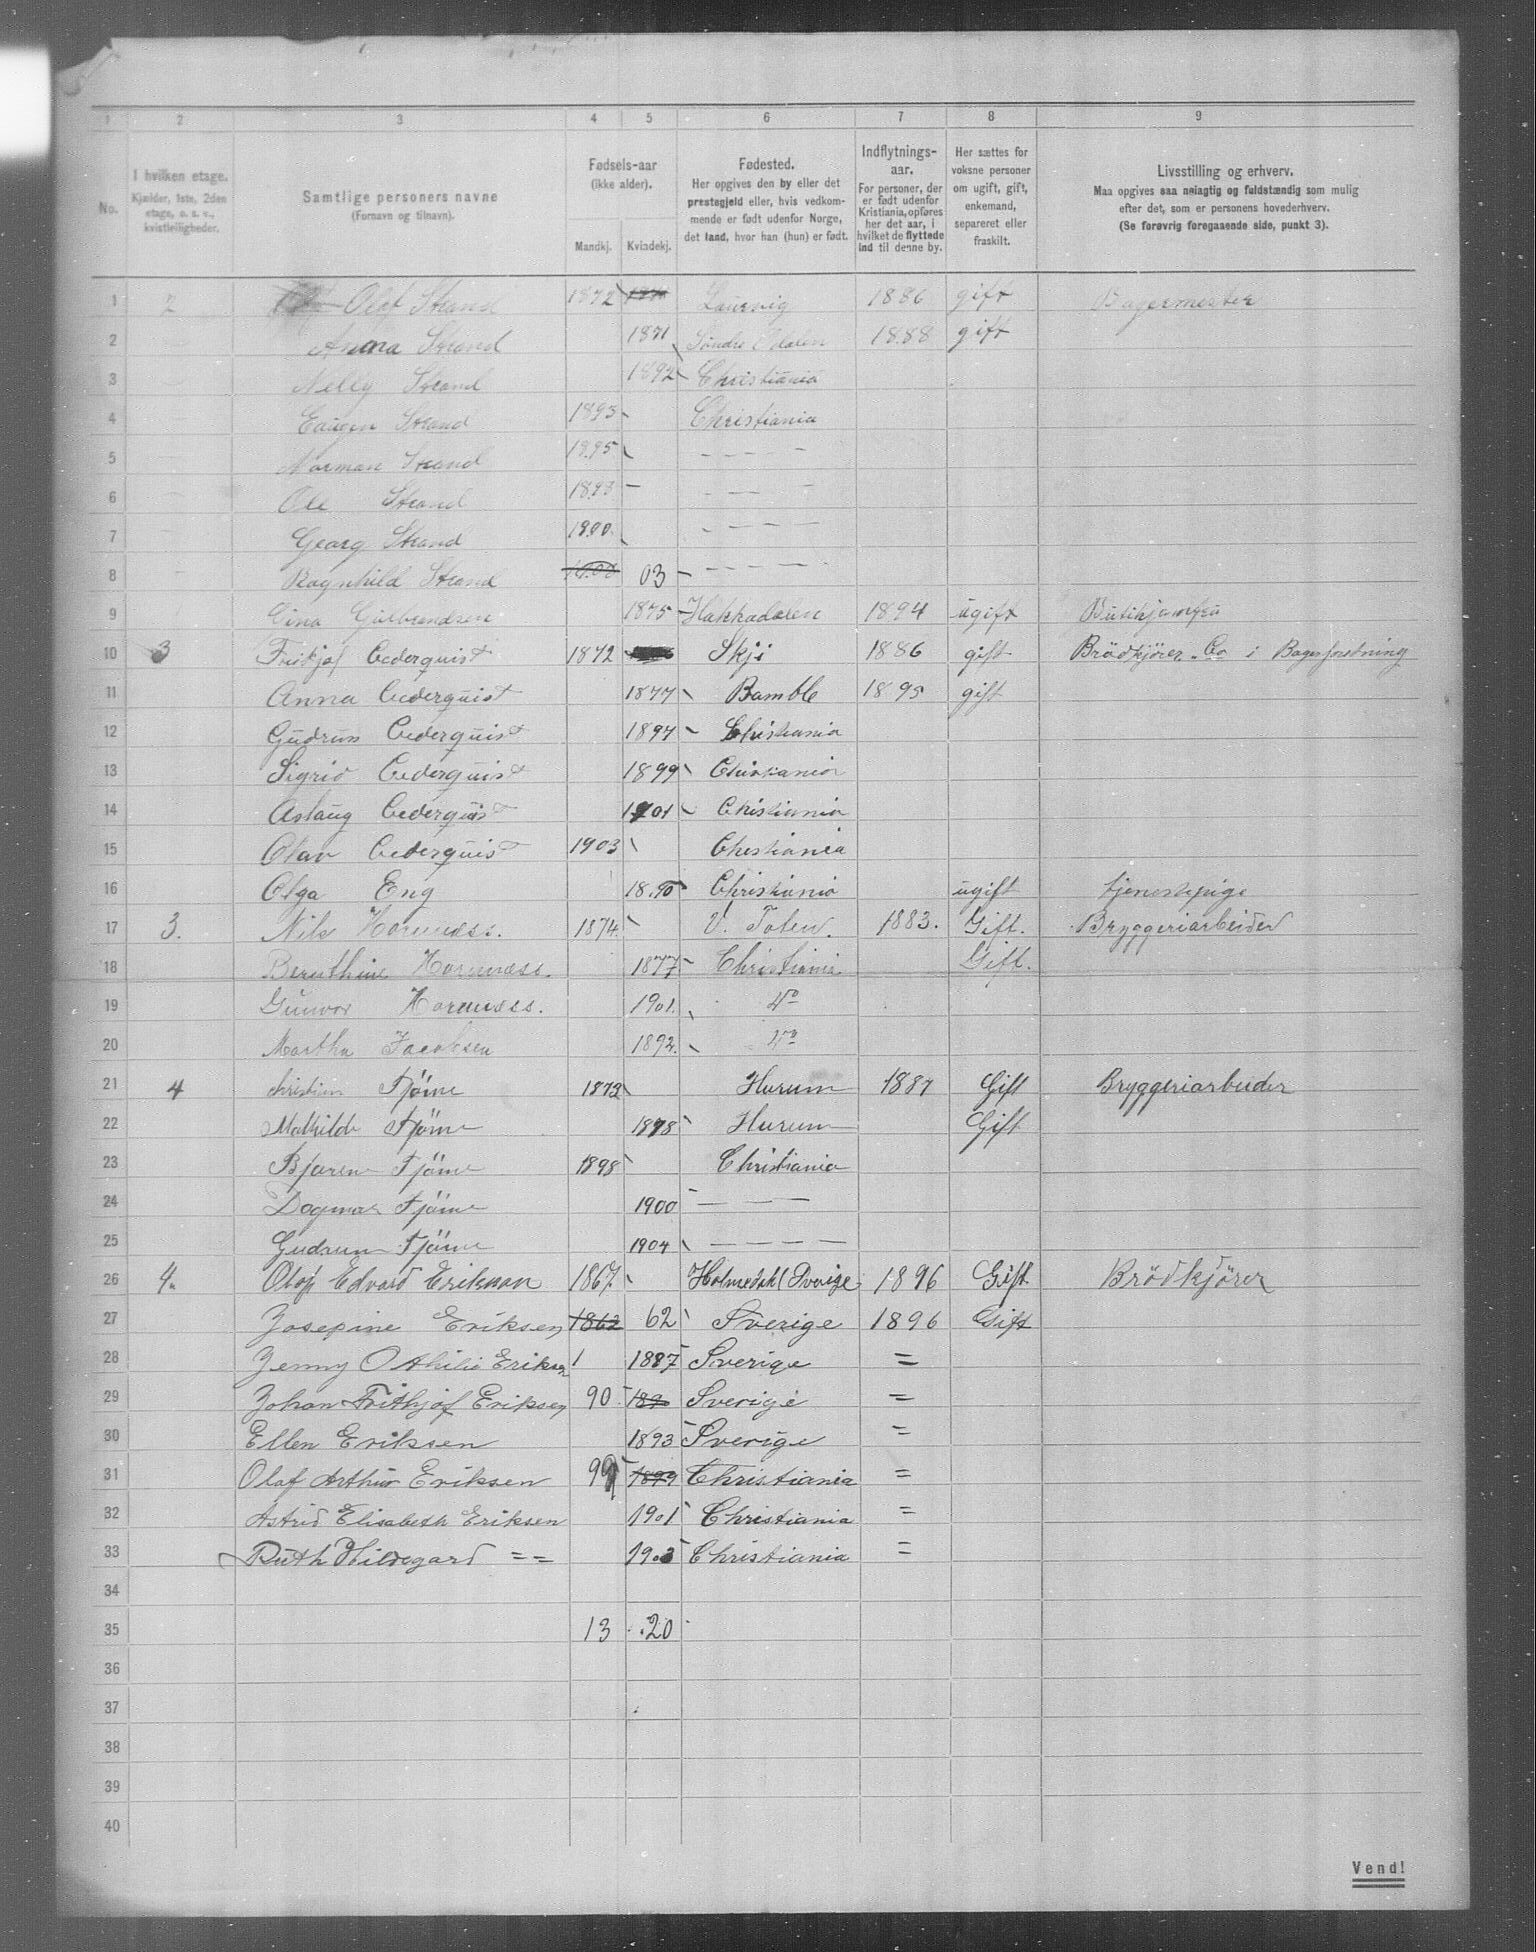 1 2 3 4 5 6 7 8 9
No.
I hvilken etage.
Kjælder, 1ste, 2den
etage, o. s. v.,
kvistleiligheder.
Samtlige personers navne
(Fornavn og tilnavn).
Fødsels-aar
(ikke alder).
Mandkj. Kvindekj.
Fødested.
Her opgives den by eller det
prestegjeld eller, hvis vedkom-
mende er født udenfor Norge,
det land, hvor han (hun) er født.
Indflytnings-
aar.
For personer, der
er født udenfor
Kristiania, opføres
her det aar, i
hvilket de flyttede
ind til denne by.
Her sættes for
voksne personer
om ugift, gift,
enkemand,
separeret eller
fraskilt.
Livsstilling og erhverv.
Maa opgives saa nøiagtig og fuldstændig som mulig
efter det, som er personens hovederhverv.
(Se forøvrig foregaaende side, punkt 3).
1 2 Olaf Strand 1872 Laurvig 1886 gift Bagermester
2 Anna Strand 1871 Søndre Odalen 1888 gift
3 Nelly Strand 1892 Christiania
4 Strand 1893 Christiania
5 Norman Strand 1895 - - - - -
6 Ole Strand 1898 - - - -
7 Georg Strand 1900 - - - - -
8 Ragnhild Strand 03 - - - - -
9 Gina Gulbrandsen 1875 Hakkadalen 1894 ugift Butikjomfru
10 3 Fritjof Cederquist 1872 Skji 1886 gift Brödkjörer Co i Bagerforetning
11 Anna Cederquist 1877 Bamble 1895 gift
12 Gudrun Cederquist 1897 Christiania
13 Sigrid Cederquist 1899 Christiania
14 Aslaug Cederquist 1901 Christiania
15 Olav Cederquist 1903 Christiania
16 Olga Eng 1890 Christiania ugift tjenestepige
17 3. Nils Hornnæss. 1874. V. Toten. 1883. Gift. Bryggeriarbeider
18 Bernthine Hornnæss. 1877 Christiania Gift.
19 Gunvor Hornnæss. 1901. do
20 Martha Jacobsen 1892. do
21 4 Christian Tjöme 1872 Hurum 1887 Gift Bryggeriarbeider
22 Mathilde Tjöme 1878 Hurum Gift
23 Bjarne Tjöme 1898 Christiania
24 Dagmar Tjöme 1900 — — —
25 Gudrun Tjöme 1904 — — — —
26 4. Olof Edvard Eriksson 1867. Holmedal (Sverige 1896 Gift Brödkjörer
27 Josepine Eriksen 1862 62 Sverige 1896 Gift
28 Jenny Othilie Eriksen 1 1887 Sverige =
29 Johan Frithjof Eriksen 90 Sverige =
30 Ellen Eriksen 1893 Sverige =
31 Olaf Arthur Eriksen 99 1899 Christiania =
32 Astrid Elisabeth Eriksen 1901 Christiania =
33 Ruth Hildegard = = 1903 Christiania =
34
35 13 20
36
37
38
39
40
Vend!